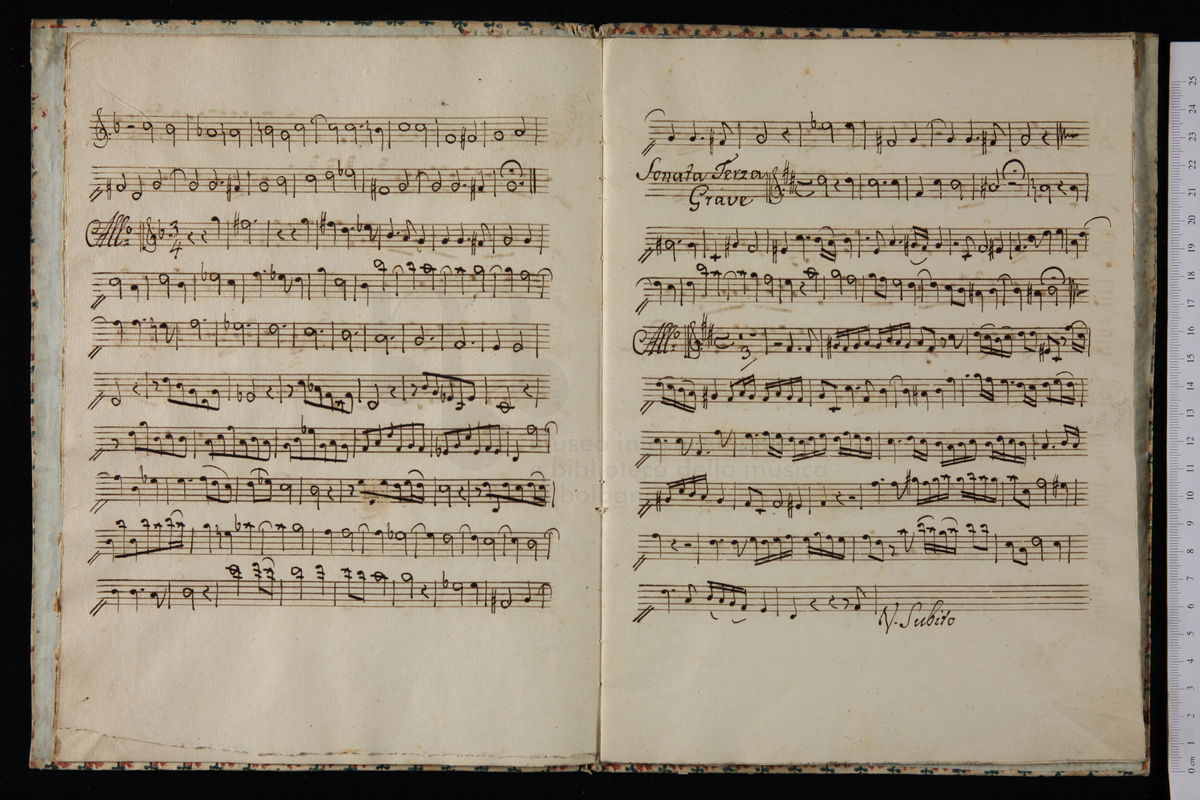 All:o
3
4
Sonata Terza
Grave
All:o
3
V. Subito
museo in
e biblioteca della musica
bologna
0 cm 1 2 3 4 5 6 7 8 9 10 11 12 13 14 15 16 17 18 19 20 21 22 23 24 25